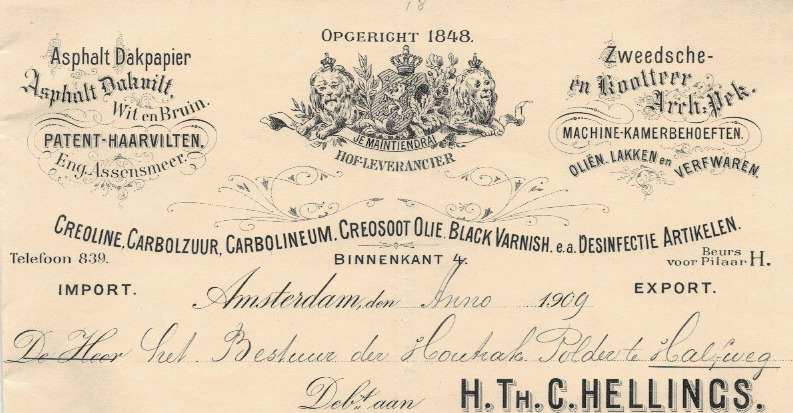 18
OPGERICHT 1848.
Asphalt Dakpapier
Asphalt Dakvilt.
Wit en Bruin.
PATENT-HAARVILTEN.
Eng. Assensmeer.
JE MAINTIENDRAI
HOF-LEVERANCIER
Zweedsche-
en Koolteer
Arch: Pek.
MACHINE-KAMERBEHOEFTEN.
OLIËN, LAKKEN en VERFWAREN.
CREOLINE, CARBOLZUUR, CARBOLINEUM. CREOSOOT OLIE. BLACK VARNISH. e.a. DESINFECTIE ARTIKELEN.
Telefoon 839.
BINNENKANT 4.
Beurs
voor Pilaar H.
IMPORT.
EXPORT.
Amsterdam, den Anno 1909
De Heer het Bestuur der Houtrak Polder te Halfweg
Debt. aan H. TH. C. HELLINGS.